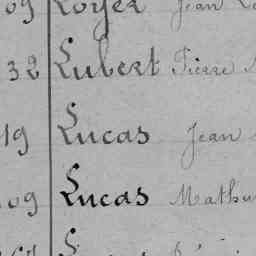 09 Loyer Jean
32 Lubert Pierre
19 Lucas Jean
09 Lucas Mathu